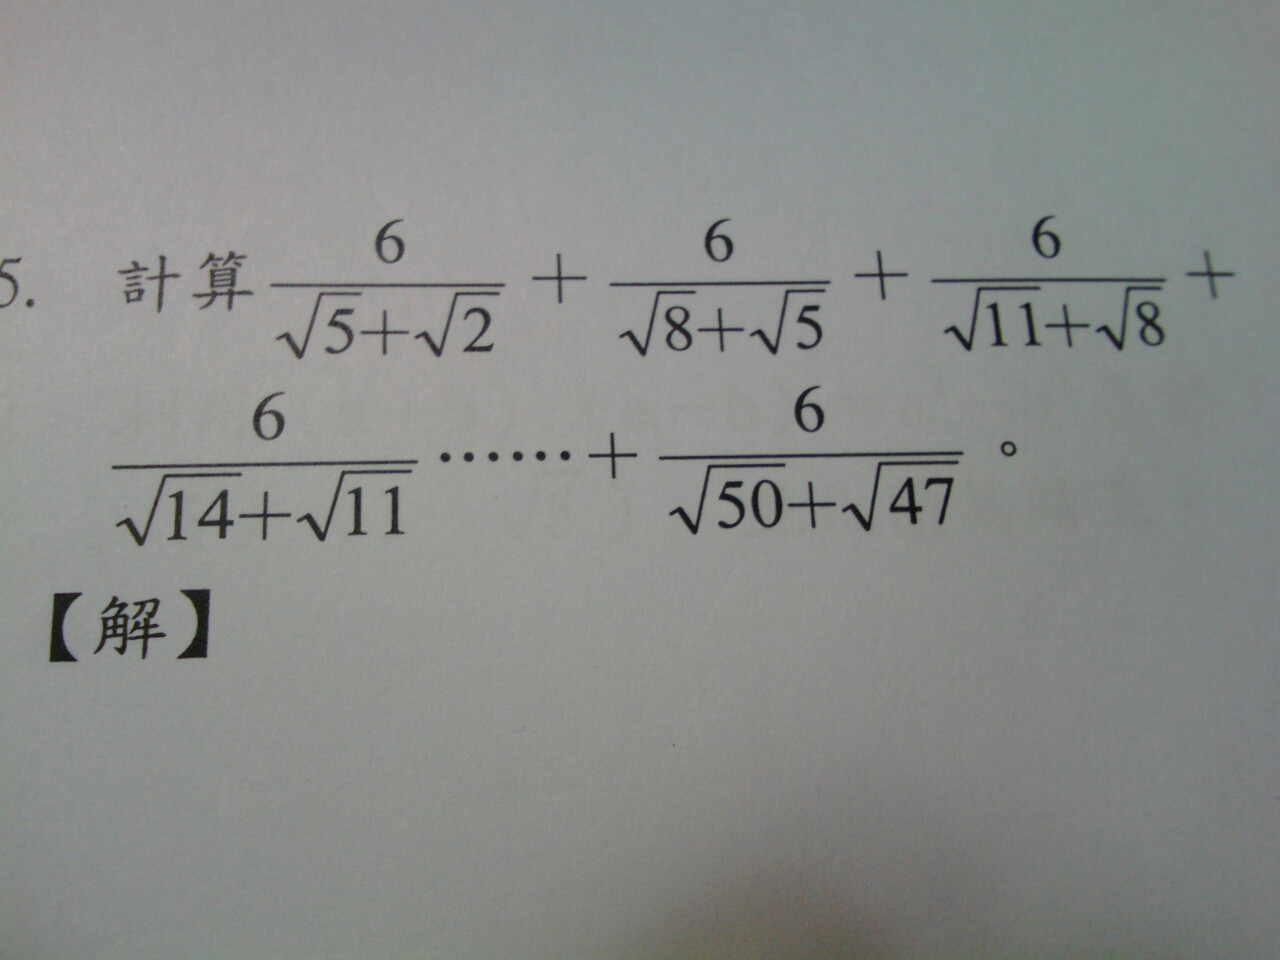 5. 計算 6/(√5+√2) + 6/(√8+√5) + 6/(√11+√8) +
6/(√14+√11) ⋯⋯ + 6/(√50+√47) 。
【解】